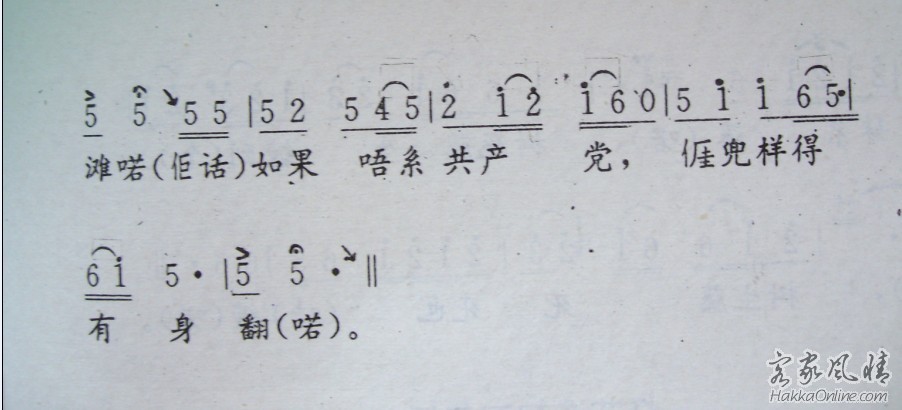 5 5 5 5 | 5 2 5 4 5 | 2̇ 1̇ 2̇ 1̇ 6 0 | 5 1̇ 1̇ 6 5· |
滩喏(佢话)如果 唔系 共产 党， 𠊎兜样得
6 1̇ 5 · | 5 5 · ‖
有 身 翻(喏)。
客家风情
HakkaOnline.com